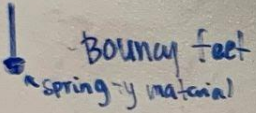 Bouncy feet
spring-y material